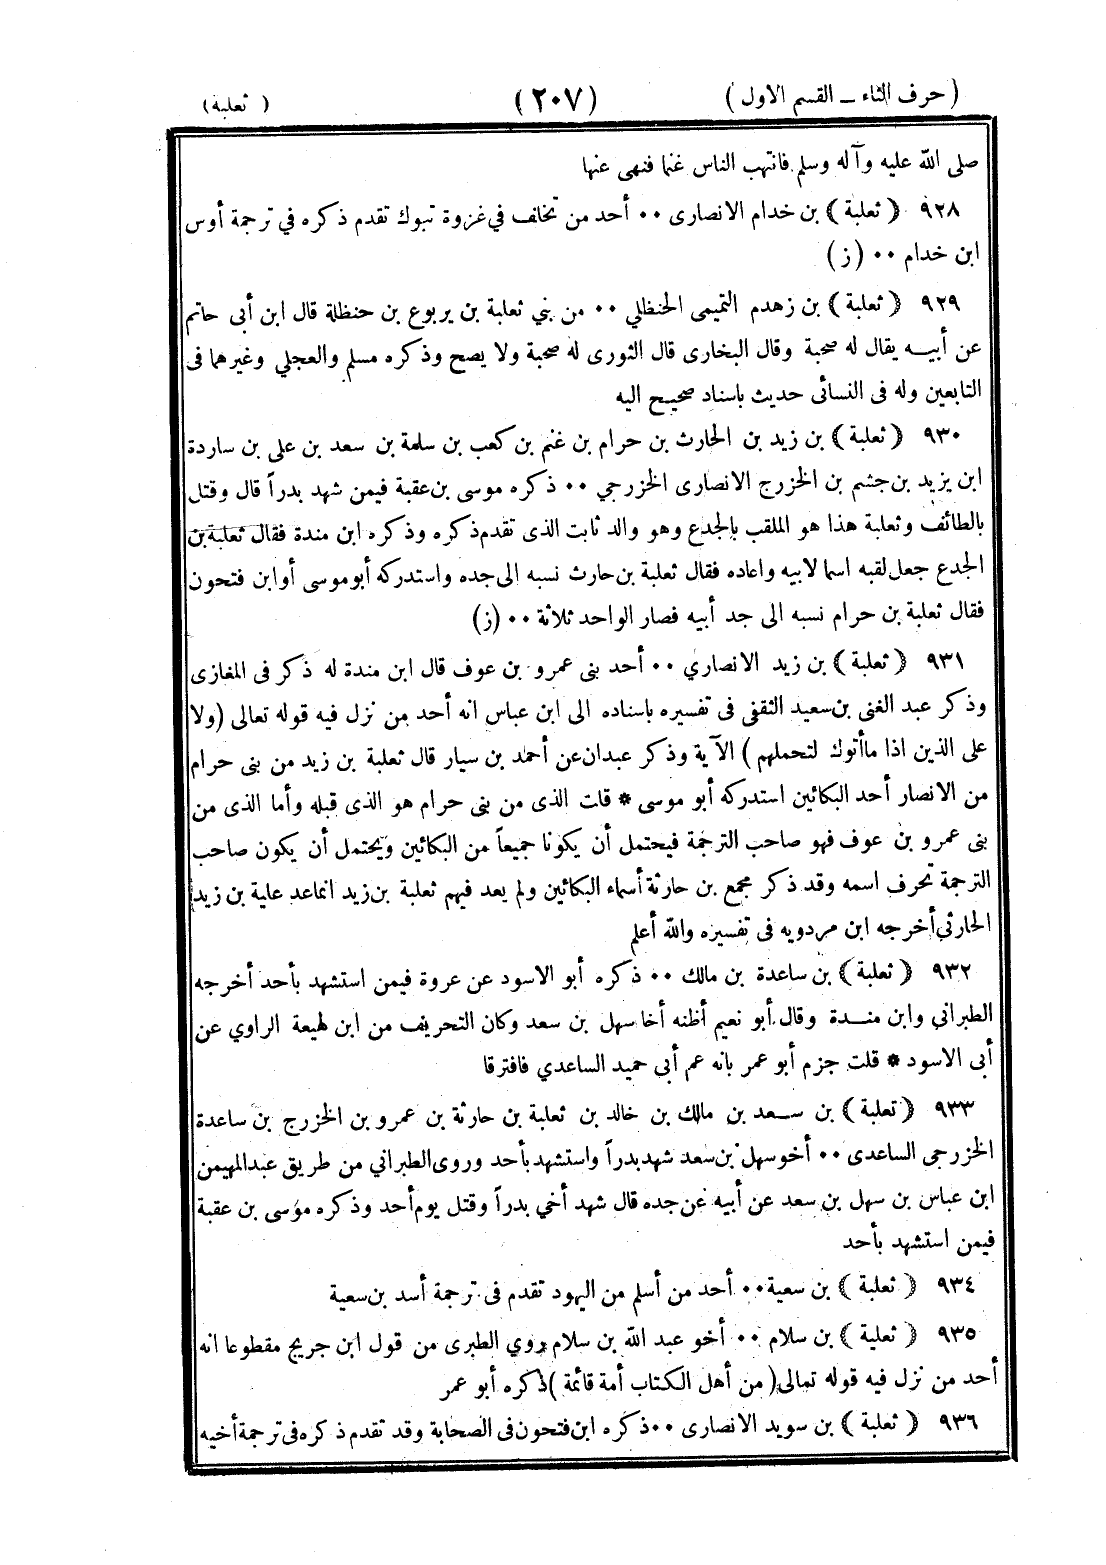 ( حرف الثاء ــ القسم الاول ) (٢٠٧) ( ثعلبة )
صلى الله عليه وآله وسلم فانتهب الناس غنما فنهى عنها
٩٢٨ ( ثعلبة ) بن خدام الانصارى ٠٠ أحد من تخلف في غزوة تبوك تقدم ذكره في ترجمة أوس
ابن خدام ٠٠ (ز)
٩٢٩ ( ثعلبة ) بن زهدم التميمى الحنظلي ٠٠ من بني ثعلبة بن يربوع بن حنظلة قال ابن أبى حاتم
عن أبيــه يقال له صحبة وقال البخارى قال الثورى له صحبة ولا يصح وذكره مسلم والعجلي وغيرهما فى
التابعين وله فى النسائى حديث باسناد صحيح اليه
٩٣٠ ( ثعلبة ) بن زيد بن الحارث بن حرام بن غنم بن كعب بن سلمة بن سعد بن على بن ساردة
ابن يزيد بن جشم بن الخزرج الانصارى الخزرجي ٠٠ ذكره موسى بن عقبة فيمن شهد بدراً قال وقتل
بالطائف وثعلبة هذا هو الملقب بالجدع وهو والد ثابت الذى تقدم ذكره وذكره ابن مندة فقال ثعلبة بن
الجدع جعل لقبه اسما لابيه واعاده فقال ثعلبة بن حارث نسبه الى جده واستدركه أبو موسى أوابن فتحون
فقال ثعلبة بن حرام نسبه الى جد أبيه فصار الواحد ثلاثة ٠٠ (ز)
٩٣١ ( ثعلبة ) بن زيد الانصاري ٠٠ أحد بنى عمرو بن عوف قال ابن مندة له ذكر فى المغازى
وذكر عبد الغنى بن سعيد الثقفى فى تفسيره باسناده الى ابن عباس انه أحد من نزل فيه قوله تعالى (ولا
على الذين اذا ماأتوك لتحملهم ) الآية وذكر عبدان عن أحمد بن سيار قال ثعلبة بن زيد من بنى حرام
من الانصار أحد البكائين استدركه أبو موسى * قلت الذى من بنى حرام هو الذى قبله وأما الذى من
بنى عمرو بن عوف فهو صاحب الترجمة فيحتمل أن يكونا جميعاً من البكائين ويحتمل أن يكون صاحب
الترجمة تحرف اسمه وقد ذكر مجمع بن حارثة أسماء البكائين ولم يعد فيهم ثعلبة بن زيد انماعد علية بن زيد
الحارثي أخرجه ابن مردويه فى تفسيره والله أعلم
٩٣٢ ( ثعلبة ) بن ساعدة بن مالك ٠٠ ذكره أبو الاسود عن عروة فيمن استشهد بأحد أخرجه
الطبراني وابن منــدة وقال أبو نعيم أظنه أخا سهل بن سعد وكان التحريف من ابن لهيعة الراوي عن
أبى الاسود * قلت جزم أبو عمر بانه عم أبي حميد الساعدي فافترقا
٩٣٣ ( ثعلبة ) بن ســعد بن مالك بن خالد بن ثعلبة بن حارثة بن عمرو بن الخزرج بن ساعدة
الخزرجى الساعدى ٠٠ أخو سهل بن سعد شهد بدراً واستشهد بأحد وروى الطبراني من طريق عبد المهيمن
ابن عباس بن سهل بن سعد عن أبيه عن جده قال شهد أخي بدراً وقتل يوم أحد وذكره موسى بن عقبة
فيمن استشهد بأحد
٩٣٤ ( ثعلبة ) بن سعية ٠٠ أحد من أسلم من اليهود تقدم فى ترجمة أسد بن سعية
٩٣٥ ( ثعلبة ) بن سلام ٠٠ أخو عبد الله بن سلام روي الطبرى من قول ابن جريج مقطوعا انه
أحد من نزل فيه قوله تعالى ( من أهل الكتاب أمة قائمة ) ذكره أبو عمر
٩٣٦ ( ثعلبة ) بن سويد الانصارى ٠٠ ذكره ابن فتحون فى الصحابة وقد تقدم ذكره فى ترجمة أخيه